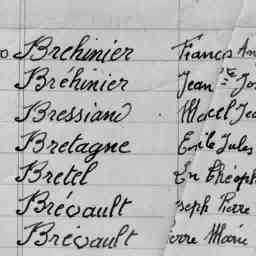 Brehinier Francs An
Bréhinier Jean Jos
Bressiand Marcel Jea
Bretagne Emile Jules
Bretel En théoph
Brévault oseph Pierre
Brévault ierre Marie